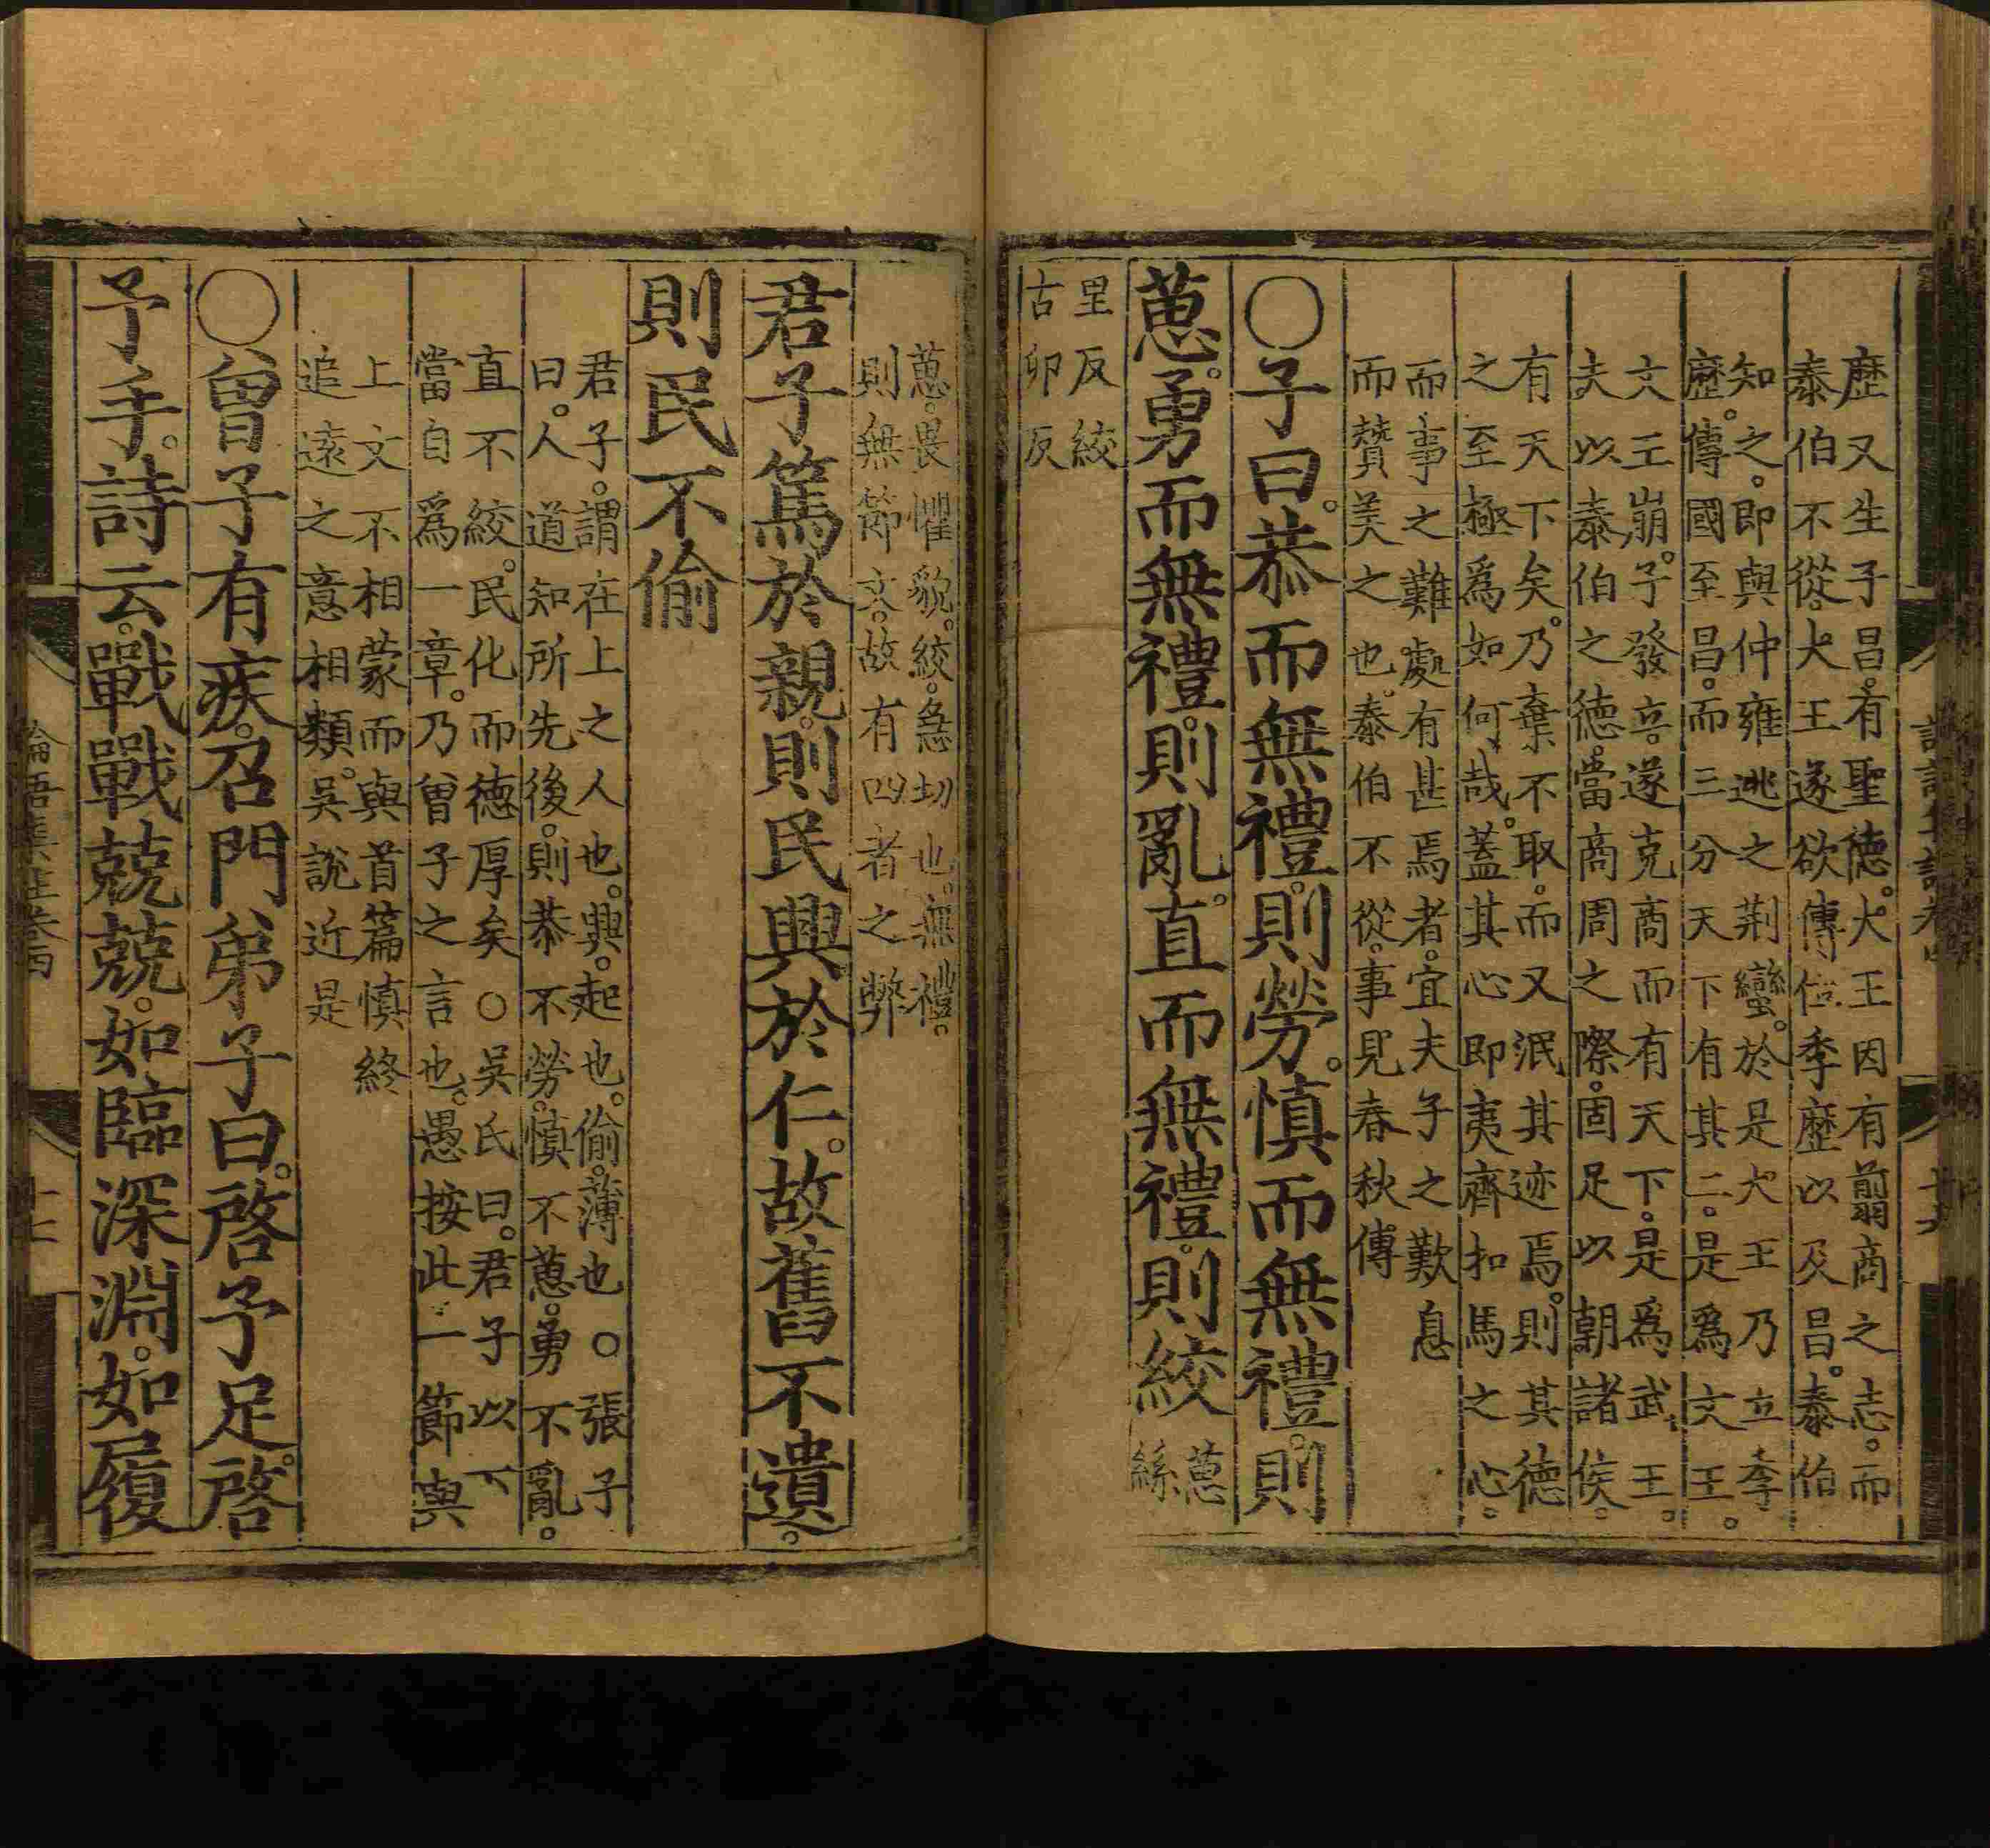 歷又生子昌。有聖德。大王因有翦商之志。而
泰伯不從。大王遂欲傳位季歷以及昌。泰伯
知之。即與仲雍逃之荆蠻。於是大王乃立季
歷。傳國至昌。而三分天下有其二。是爲文王。
文王崩。子發立。遂克商而有天下。是爲武王。
夫以泰伯之德。當商周之際。固足以朝諸侯。
有天下矣。乃棄不取。而又泯其迹焉。則其德
之至極爲如何哉。蓋其心即夷齊扣馬之心。
而事之難處有甚焉者。宜夫子之歎息
而贊美之也。泰伯不從。事見春秋傳
○子曰。恭而無禮。則勞。慎而無禮。則
葸。勇而無禮。則亂。直而無禮。則絞
葸
絲
里反絞
古卯反
葸。畏懼貌。絞。急切也。無禮。
則無節文。故有四者之弊
君子篤於親。則民興於仁。故舊不遺。
則民不偷
君子。謂在上之人也。興。起也。偷。薄也○張子
曰。人道知所先後。則恭不勞。慎不葸。勇不亂。
直不絞。民化而德厚矣○吳氏曰。君子以下
當自爲一章。乃曾子之言也。愚按此一節與
上文不相蒙而與首篇慎終
追遠之意相類。吳說近是
○曾子有疾。召門弟子曰。啓予足。啓
予手。詩云。戰戰兢兢。如臨深淵。如履